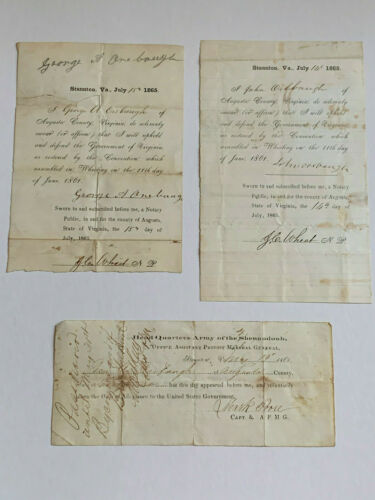 George A Orebaugh
Staunton, Va., July 15th 1865.
I George A Orebaugh of
Augusta County, Virginia, do solemnly
swear (or affirm) that I will uphold
and defend the Government of Virginia
as restored by the Convention which
assembled in Wheeling on the 11th day
of June, 1861.
George A Orebaugh
Sworn to and subscribed before me, a Notary
Public, in and for the county of Augusta,
State of Virginia, the 15th day of
July, 1865.
N P
Staunton, Va., July 14th 1865.
I John Orebaugh of
Augusta County, Virginia, do solemnly
swear (or affirm) that I will uphold
and defend the Government of Virginia
as restored by the Convention which
assembled in Wheeling on the 11th day
of June, 1861.
John Orebaugh
Sworn to and subscribed before me, a Notary
Public, in and for the county of Augusta,
State of Virginia, the 14th day of
July, 1865.
N P
Head Quarters Army of the Shenandoah,
Office Assistant Provost Marshal General,
Augusta County,
has this day appeared before me, and
taken the Oath of Allegiance to the United States Government.
Capt. & A. P. M. G.